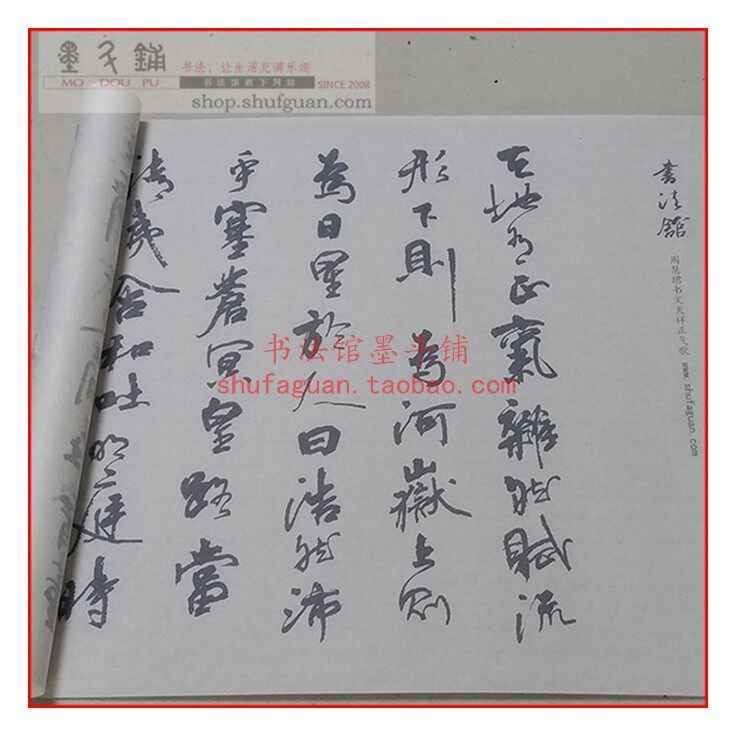 墨斗铺
MO DOU PU
书法，让生活充满乐趣
书法馆旗下网站
SINCE 2008
shop.shufguan.com
書法館
周慧珺书文天祥正气歌 www.shufaguan.com
天地有正氣雜然賦流
形下則為河嶽上则
為日星於人曰浩然沛
乎塞蒼冥皇路當
清夷含和吐明廷時
书法馆墨斗铺
shufaguan.taobao.com